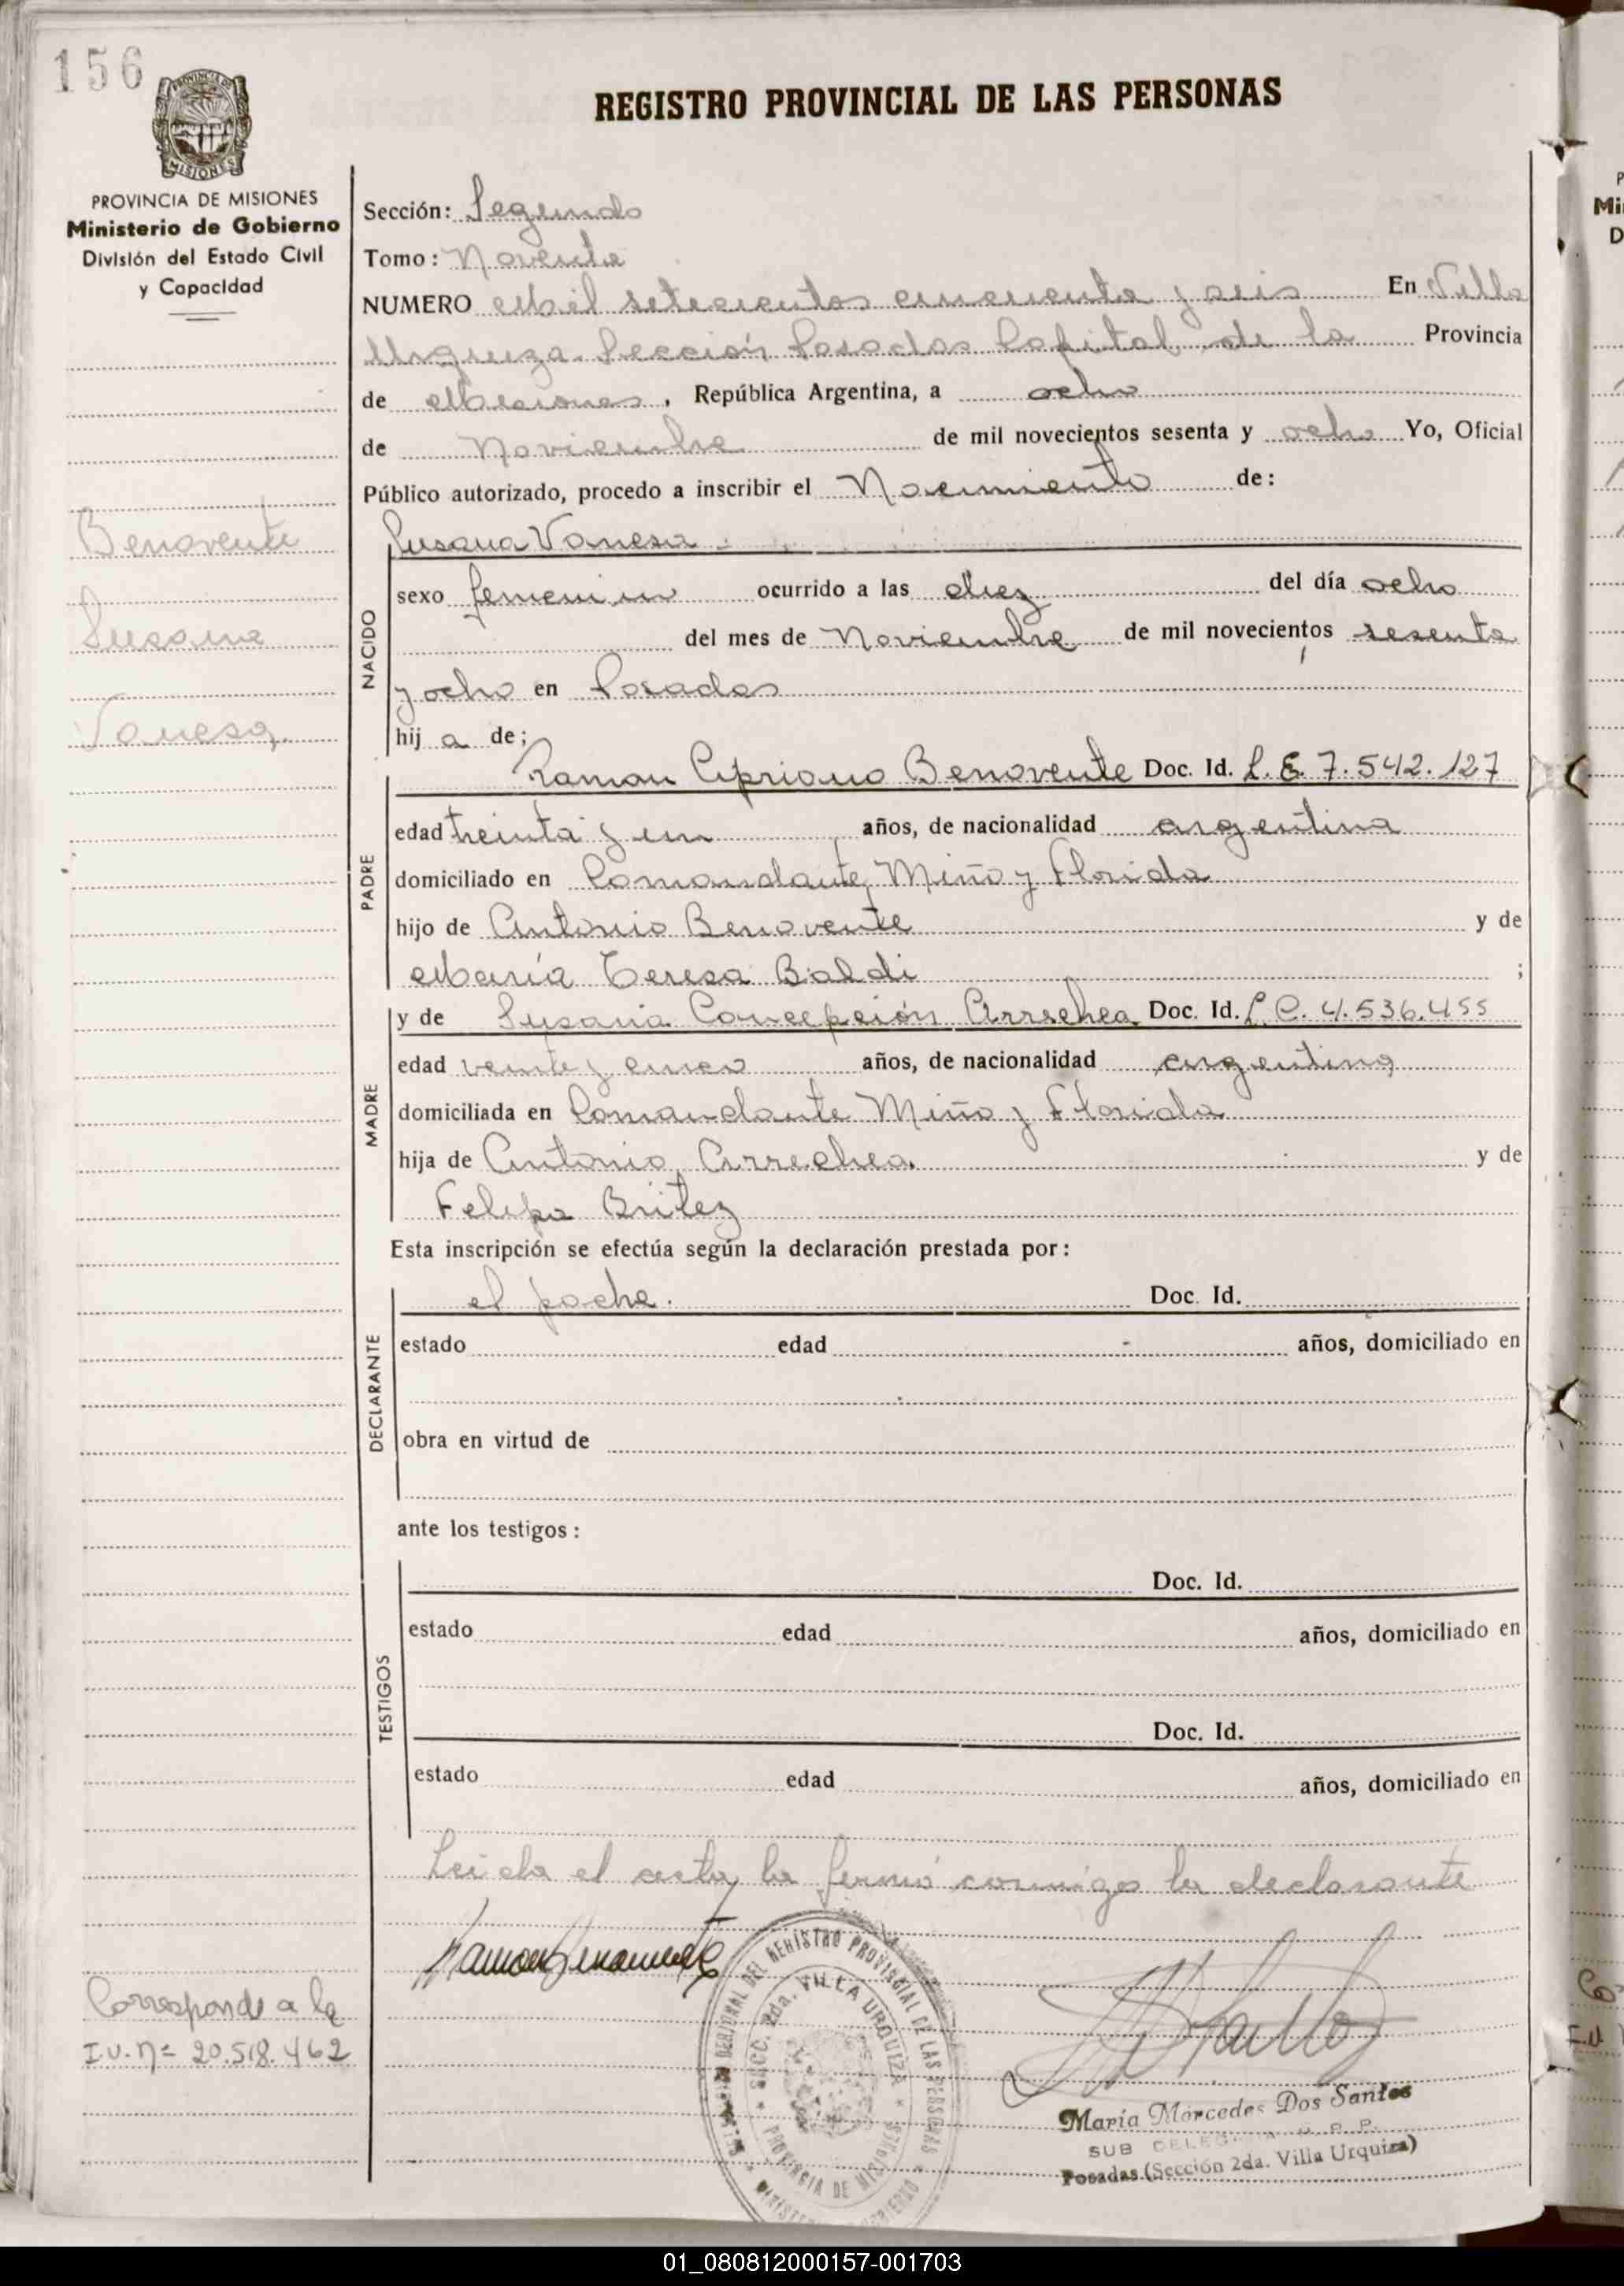 156
REGISTRO PROVINCIAL DE LAS PERSONAS
PROVINCIA DE MISIONES
Ministerio de Gobierno
División del Estado Civil
y Capacidad
Sección: Segunda
Tomo: Noventa
NUMERO Mil setecientos cincuenta y seis En Villa
Urquiza Sección Posadas Capital de la Provincia
de Misiones, República Argentina, a ocho
de Noviembre de mil novecientos sesenta y ocho Yo, Oficial
Público autorizado, procedo a inscribir el Nacimiento de:
Benavente
Susana
Vanesa
Susana Vanesa
NACIDO
sexo femenino ocurrido a las diez del día ocho
del mes de Noviembre de mil novecientos sesenta
y ocho en Posadas
hij a de;
PADRE
Ramon Cipriano Benavente Doc. Id. L.E. 7.542.127
edad treinta y un años, de nacionalidad argentina
domiciliado en Comandante Miño y Florida
hijo de Antonio Benavente y de
María Teresa Baldi ;
MADRE
y de Susana Concepción Arrechea Doc. Id. L.C. 4.536.455
edad veinte y cinco años, de nacionalidad argentina
domiciliada en Comandante Miño y Florida
hija de Antonio Arrechea. y de
Felipa Britez
Esta inscripción se efectúa según la declaración prestada por:
DECLARANTE
el padre. Doc. Id.
estado edad años, domiciliado en
obra en virtud de
ante los testigos:
TESTIGOS
Doc. Id.
estado edad años, domiciliado en
Doc. Id.
estado edad años, domiciliado en
Leida el acta, la firmó conmigo la declarante
Ramon Benavente
Corresponde a la
I.U. Nº 20.518.462
DEL REGISTRO PROVINCIAL DE LAS PERSONAS
SECC. 2da. VILLA URQUIZA
PROVINCIA DE MISIONES
María Mercedes Dos Santos
SUB DELEGADA R. P. P.
Posadas (Sección 2da. Villa Urquiza)
01_080812000157-001703